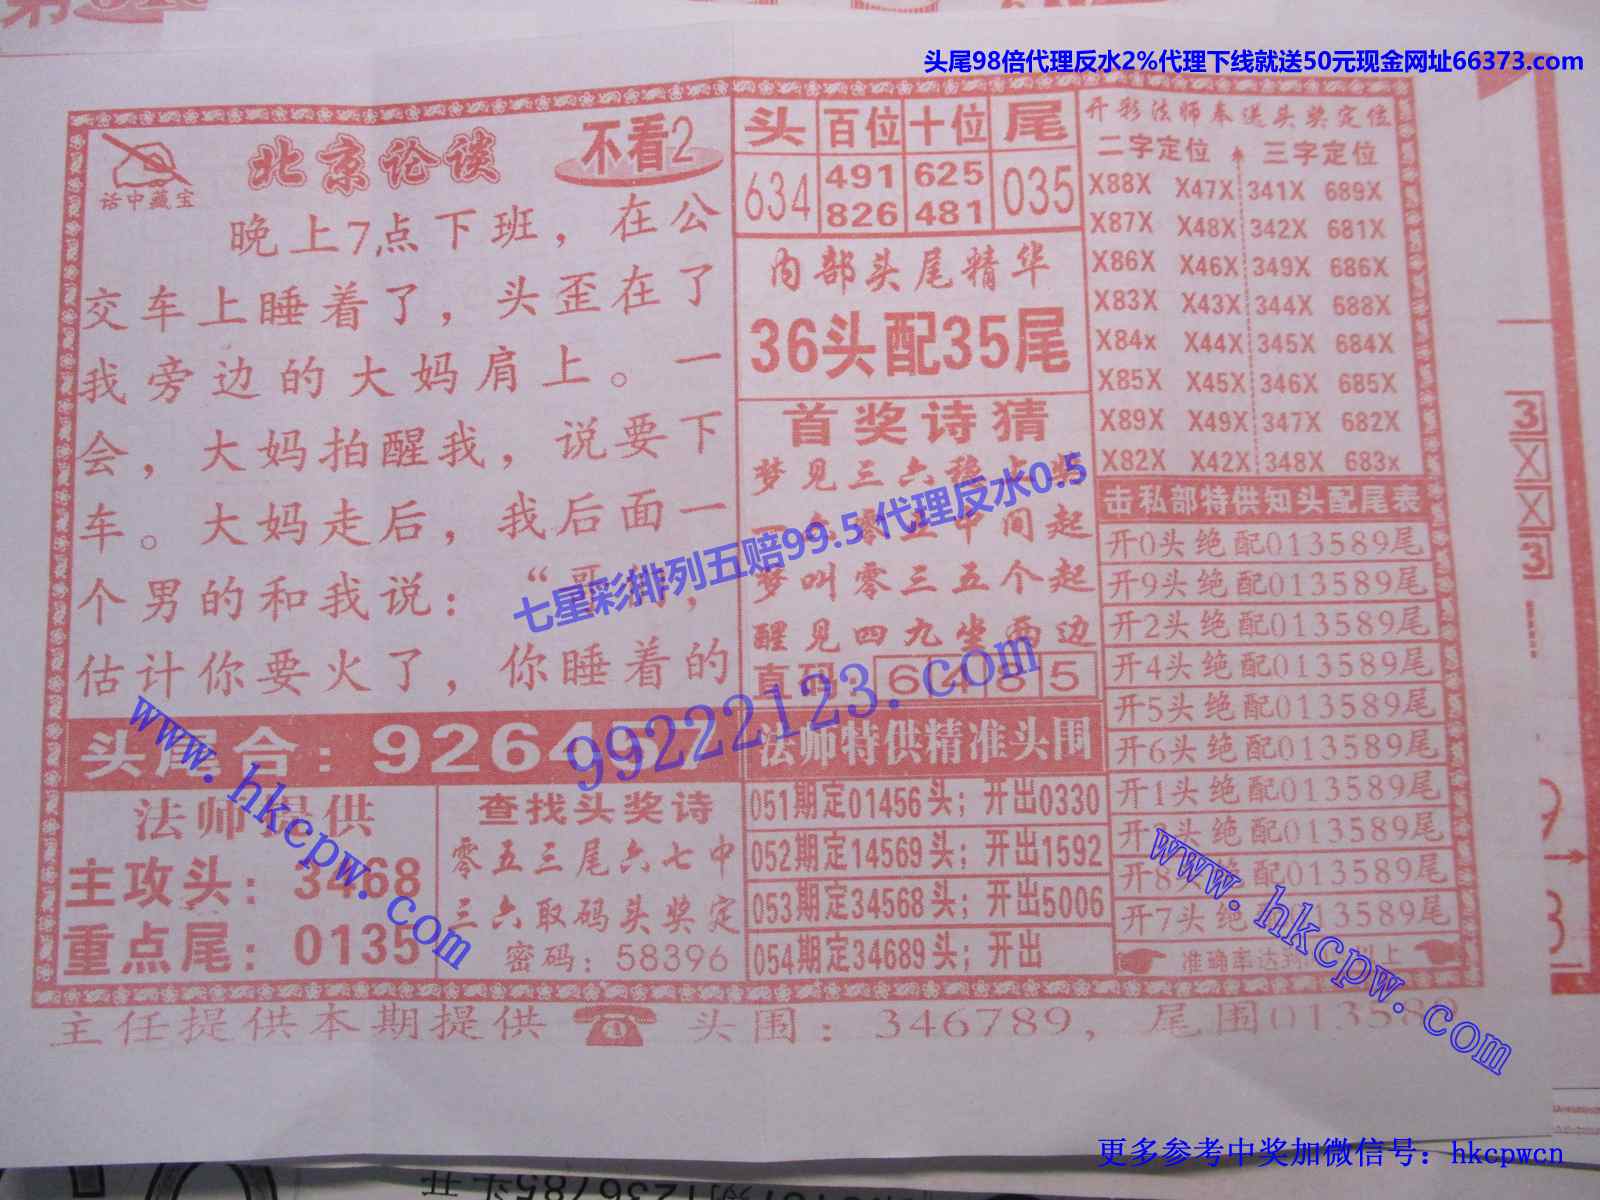 头尾98倍代理反水2%代理下线就送50元现金网址66373.com
话中藏宝
北京论谈
不看2
晚上7点下班，在公
交车上睡着了，头歪在了
我旁边的大妈肩上。一
会，大妈拍醒我，说要下
车。大妈走后，我后面一
个男的和我说：“哥们，
估计你要火了，你睡着的
头尾合：926457
法师提供
主攻头：3468
重点尾：0135
查找头奖诗
零五三尾六七中
三六取码头奖定
密码：58396
头 百位 十位 尾
634 491 625 035
826 481
内部头尾精华
36头配35尾
首奖诗猜
梦见三六稳点奖
六零五中间起
梦叫零三五个起
醒见四九坐两边
直码 6485
法师特供精准头围
051期定01456头；开出0330
052期定14569头；开出1592
053期定34568头；开出5006
054期定34689头；开出
开彩法师奉送头奖定位
二字定位 三字定位
X88X X47X 341X 689X
X87X X48X 342X 681X
X86X X46X 349X 686X
X83X X43X 344X 688X
X84x X44X 345X 684X
X85X X45X 346X 685X
X89X X49X 347X 682X
X82X X42X 348X 683x
击私部特供知头配尾表
开0头绝配013589尾
开9头绝配013589尾
开2头绝配013589尾
开4头绝配013589尾
开5头绝配013589尾
开6头绝配013589尾
开1头绝配013589尾
开3头绝配013589尾
开8头绝配013589尾
开7头绝配013589尾
准确率达到 以上
主任提供本期提供 头围：346789，尾围013589
七星彩排列五赔99.5代理反水0.5
99222123.com
www.hkcpw.com
www.hkcpw.com
3
X
X
3
更多参考中奖加微信号：hkcpwcn